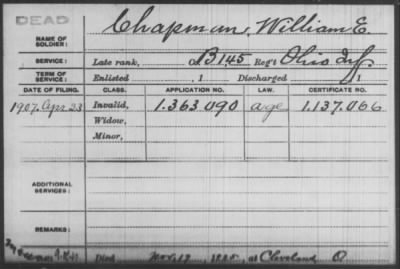 DEAD
NAME OF SOLDIER: Chapman, William E.
SERVICE: Late rank, Co B 145 Reg't Ohio Inf.
TERM OF SERVICE: Enlisted , 1 Discharged , 1
DATE OF FILING. CLASS. APPLICATION NO. LAW. CERTIFICATE NO.
1907. Apr. 23 Invalid, 1.363.090 age 1.137.066
Widow,
Minor,
ADDITIONAL SERVICES:
REMARKS:
Died Nov. 19 , at Cleveland O